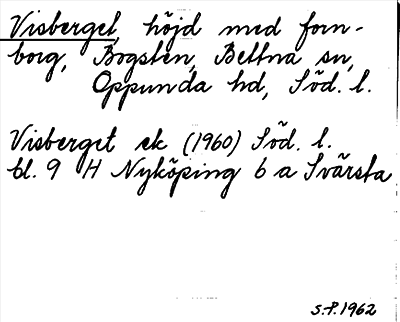 Visberget, höjd med forn-
borg, Bogsten, Bettna sn,
Oppunda hd, Söd. l.
Visberget ek (1960) Söd. l.
bl. 9 H Nyköping 6 a Svärsta
S.P. 1962